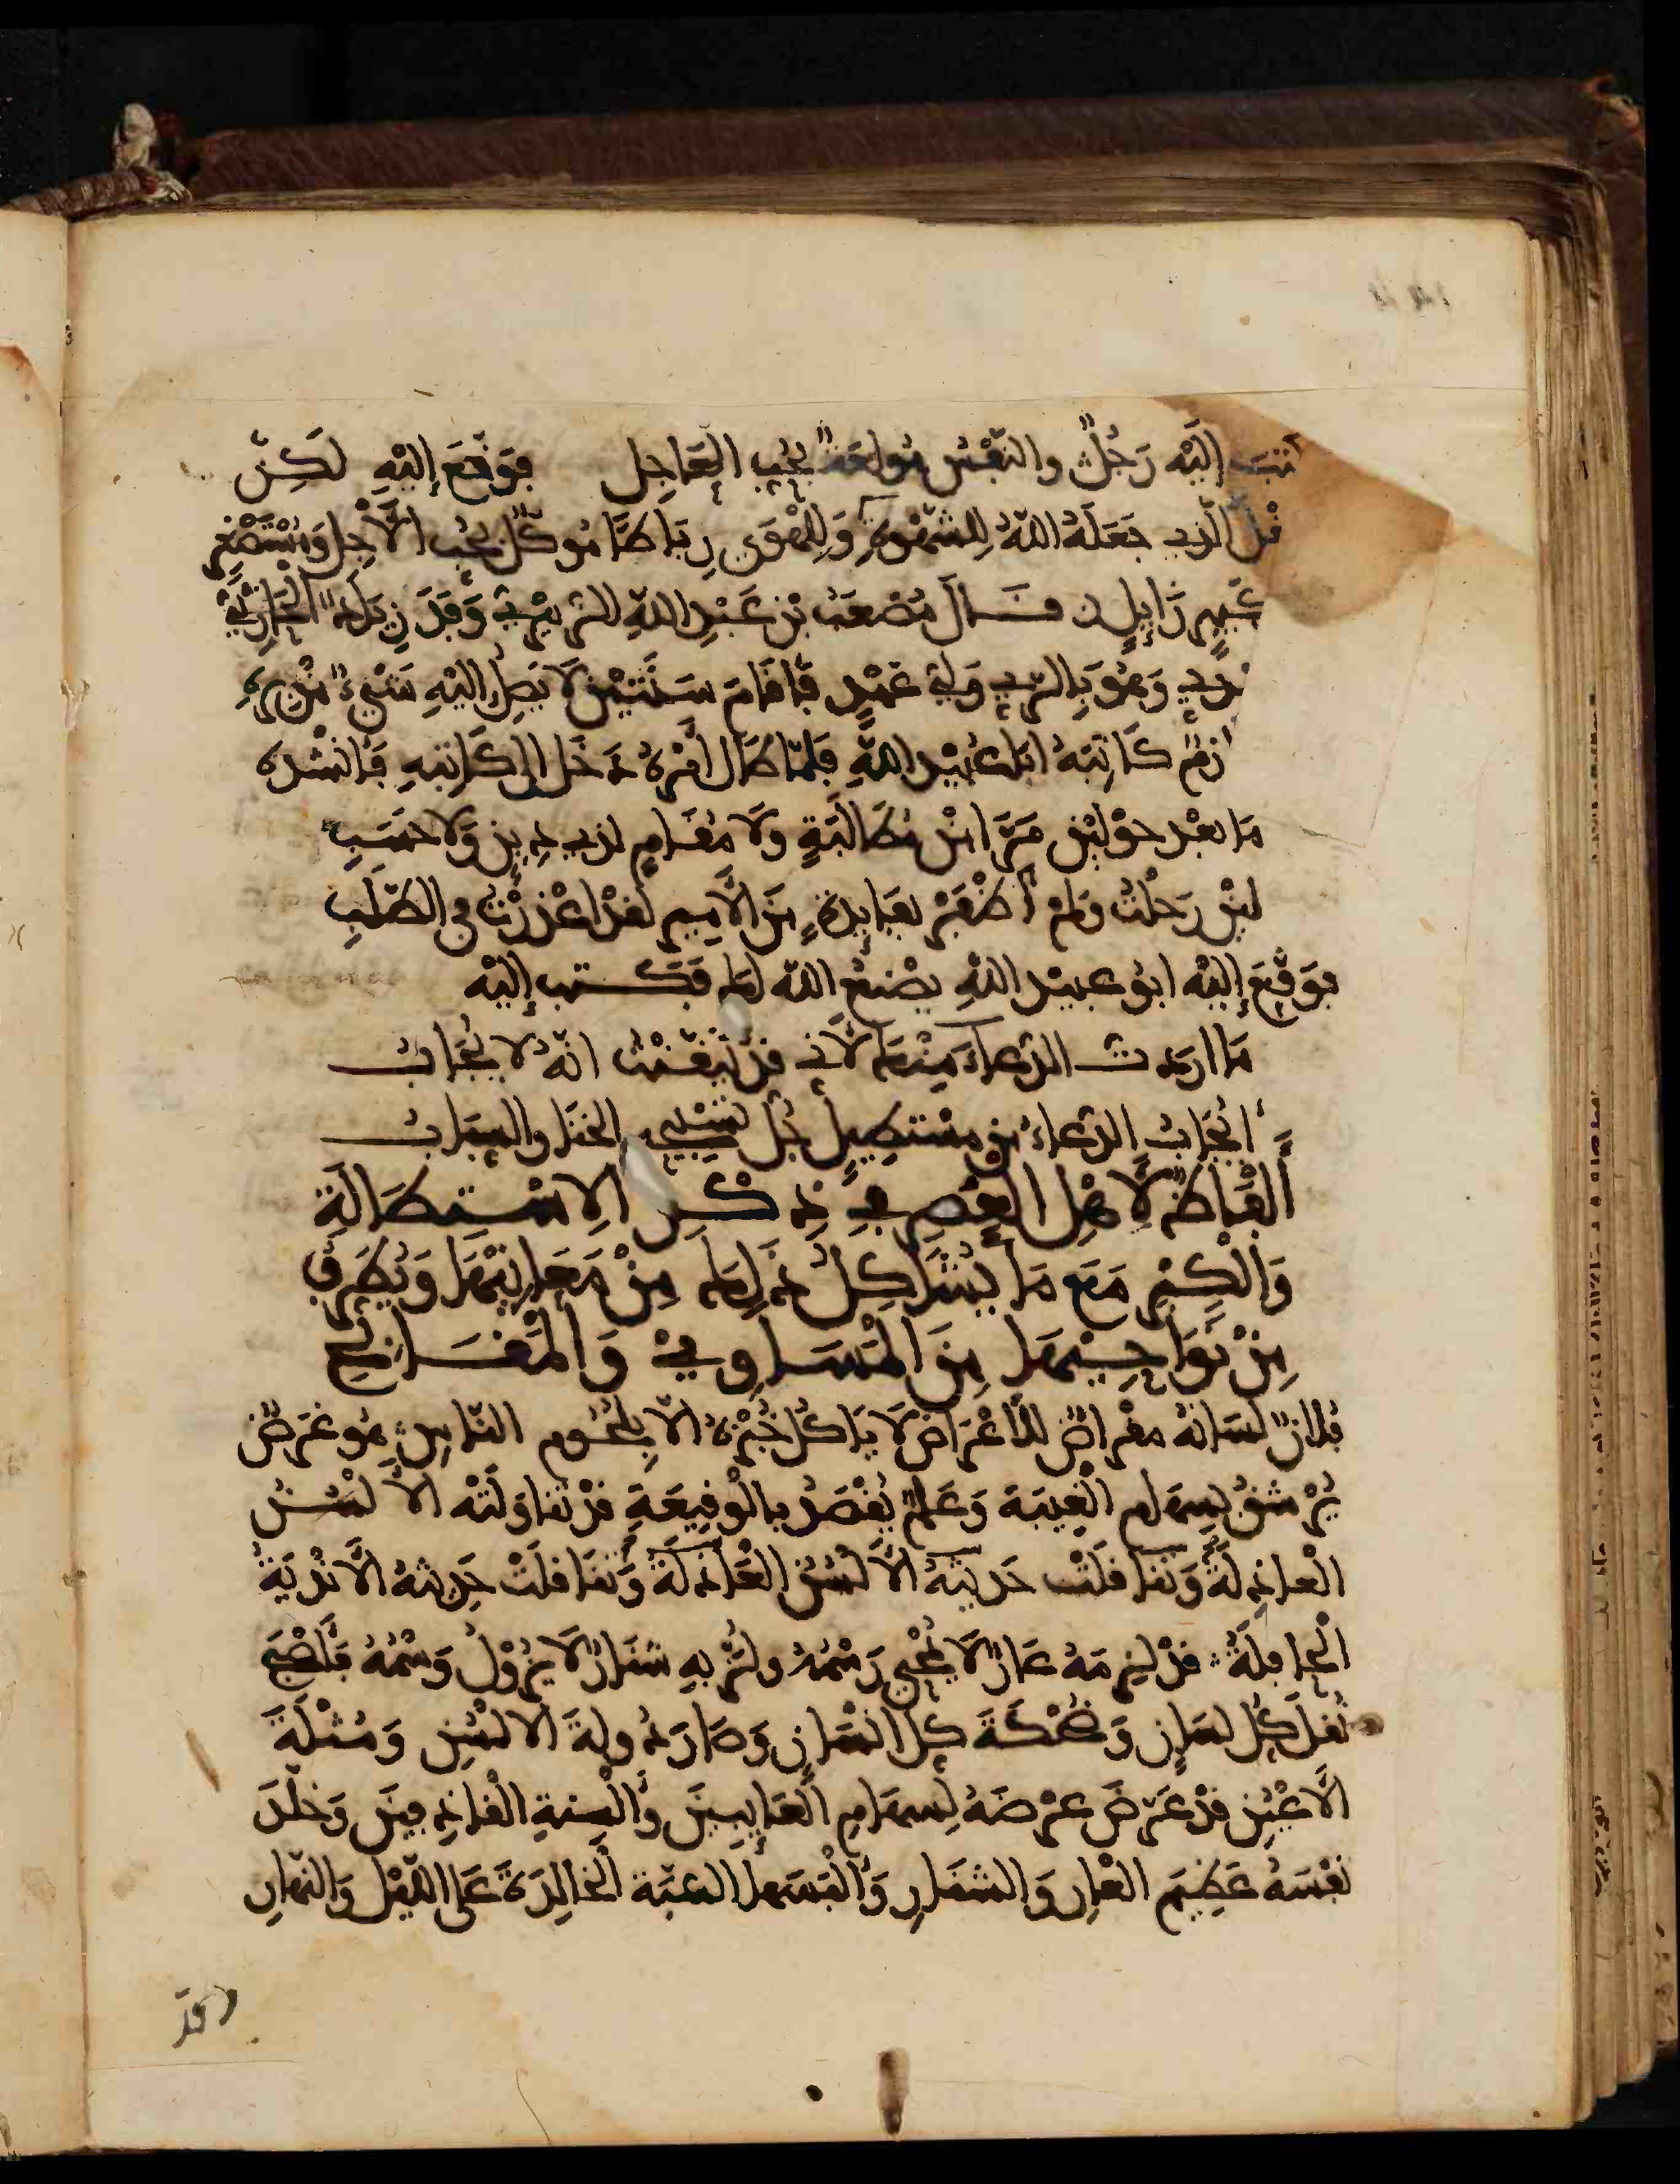 كتب إليه رجلٌ والنفس مولعةٌ بحب العاجل فوقّع إليه لكن
العقل الذي جعله اللهُ للشهوةِ وللهوى رباطًا موكّل بحب الآجل ومستصغر
زايل قال مصعب بن عبد الله الزبيري وفد زيادة الحارثي
المهدي وهو بالري ولي عهد فأقام سنتين لا يصل إليه شيء من بره
لازم كاتبه ابا عبيد الله فلمّا طال أمره دخل إلى كاتبه فأنشده
ما بعد حولين مرّا من مطالبةٍ ولا مقام لذي دين ولا حسب
لئن رحلت ولم أظفر بفايدةٍ من الأمير لقد أعذرت في الطّلب
فوقّع إليه أبو عبيد الله يصنع الله لك فكتب إليه
ما اردت الدعاء منك لأني قد تيقّنت انّه لا يجاب
أيجاب الدعاء من مستطيل جل تسبيحه الخنا والسباب
ألفاظ لأهل العصر في ذكر الاستطالة
والكبر مع ما يشاكل ذلك من معانيها ويطرق
من نواحيها من المساوئ والمقابح
فلان لسانه مقراضٌ للأعراض لا يأكل خبزه إلا بلحوم النّاس هو غرض
يرشق بسهام الغيبة وعلم يقصد بالوقيعة قد تناولته الألسن
العاذلة وتناقلت حديثه الألسن العاذلة وتناقلت حديثه الأندية
الحافلة قد لزمه عارٌ لا يمحى رسمه ولزّ به شنارٌ لا يزول وسمه فأصبح
نقل كل لسان وضحكة كل انسان وصار دولة الألسن ومثلة
الأعين قد عرّض عرضه لسهام العايبين وألسنة القاذفين وخلّد
نفسه عظيم العار والشنار وألبسها السّبّة الخالدة على الليل والنّهار
قد